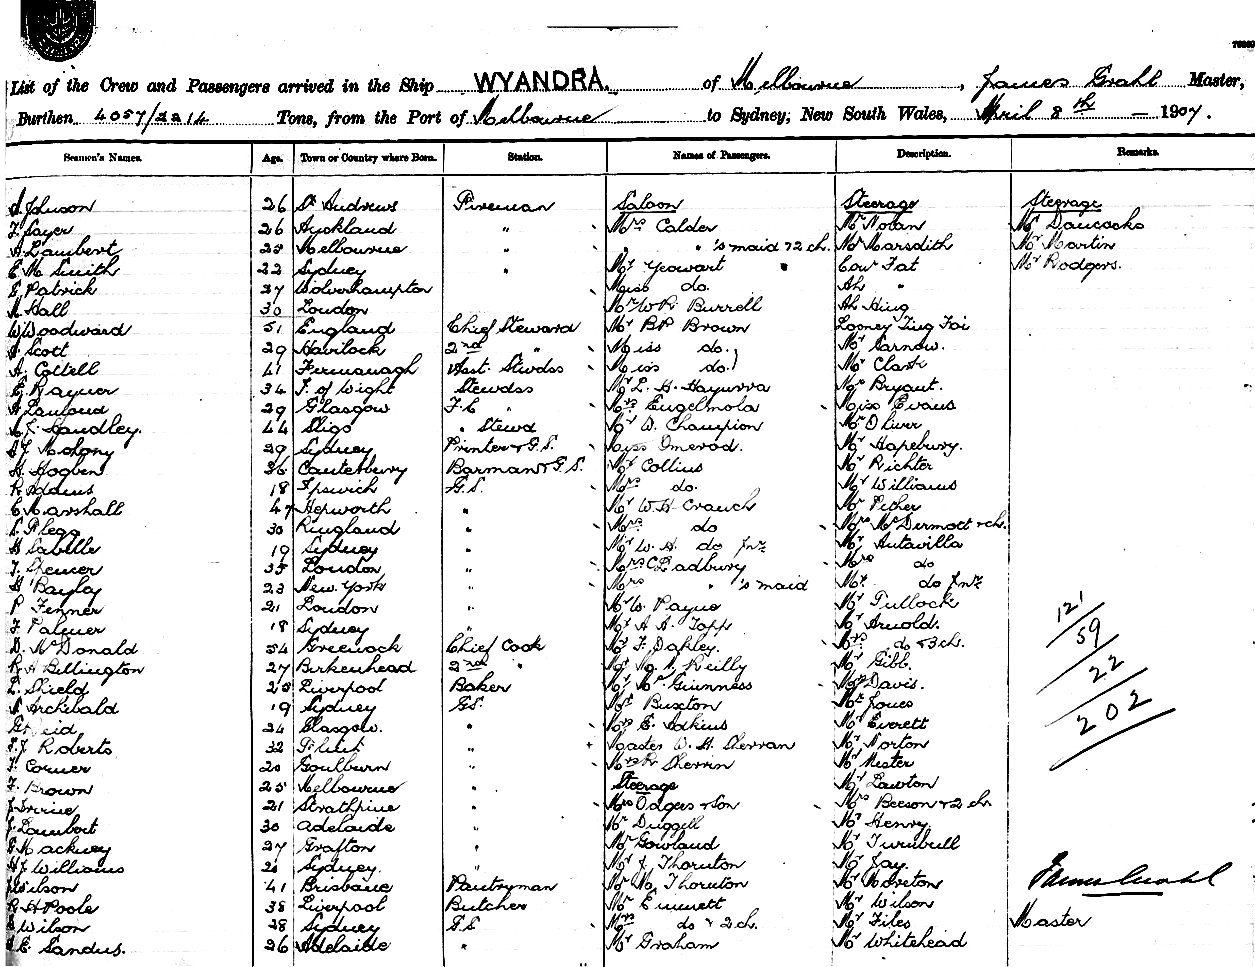 List of the Crew and Passengers arrived in the Ship WYANDRA. of Melbourne, James Grahl Master,
Burthen 4057/2214 Tons, from the Port of Melbourne to Sydney, New South Wales, April 8th — 1907.
Seamen's Names. Age. Town or Country where Born. Station. Names of Passengers. Description. Remarks.
A Johnson 26 St Andrews Fireman Saloon Steerage Steerage
F Sayer 26 Auckland " Mrs Calder Mr Nolan Mr Dancocks
A Lambert 28 Melbourne " " 's maid & 2 ch. Mr Marsdith Mr Martin
E M Smith 22 Sydney " Mr Yeowart Cow Fat Mr Rodgers.
E Patrick 27 Wolverhampton Miss do. Ah "
A Hall 30 London Mr W R Burrell Ah Hing
W Woodward 51 England Chief Steward Mr B P Brown Looney Ting Foi
A Scott 29 Havilock 2nd " Miss do. Mr Sarnow.
A Cottell 41 Fermanagh Asst. Stwdss Miss do. Mr Clark
E Rayner 34 I. of Wight Stewdss Mr L. H. Mr Bryant.
29 Glasgow F.C " Mrs Engelmola Miss Evans
Handley. 44 Sligo " Stewd Mr D. Champion Mr Oliver
Mahony 29 Sydney Printer & G.S. Miss Omerod. Mr Hapebury.
H. Hogben 36 Canterbury Barman & G.S. Mr Collins Mr Richter
R Adams 18 Ipswich G.S. Mrs do. Mr Williams
C Marshall 47 Hepworth " Mr W H Crauch Mr Pither
Flegg 30 Ringland " Mrs do Mrs McDermott & ch.
H Labelle 19 Sydney " Mr W. H. do jnr Mr Antavilla
F Spencer 35 London " Mrs C Badbury Mrs do
H Bayley 23 New York " Mrs " 's maid Mr do jnr
P Fenner 21 London " Mr W. Payne Mr Tullock
F Palmer 18 Sydney " Mr A A. Topp Mr Arnold.
D. McDonald 54 Greenock Chief Cook Mr F. Oakley. Mrs do & 3 ch.
R H Billington 27 Birkenhead 2nd " Reilly Mr Gibb.
L. Shield 20 Liverpool Baker Mr McGuinness Mrs Davis.
Archibald 19 Sydney G.S. Mr Buxton Mr Jones
24 Glasgow. " Mrs E. Adkins Mr Everett
Roberts 32 " Master W. H. Sherran Mr Norton
F. Corner 20 Goulburn " Mrs R Sherrin Mr Mester
F. Brown 25 Melbourne " Steerage Mr Lawton
J Irvine 21 Strathpine " Mrs Odgers & Son Mrs Beeson & 2 ch
J. Lambert 30 Adelaide " Mr Duggell Mr Henry
Mackney 27 Grafton " Mr Gowland Mr Turnbull
H J Williams 21 Sydney. " Mr J. Thornton Mr Jay.
J Wilson 41 Brisbane Pantryman Mr M. Thornton Mr Moreton
R H Poole 38 Liverpool Butcher Mr Emmett Mr Wilson
E Wilson 28 Sydney G.S. Mrs do & 2 ch. Mr Files
E. Sandus. 26 Adelaide " Mr Graham Mr Whitehead
121
59
22
202
James Grahl
Master